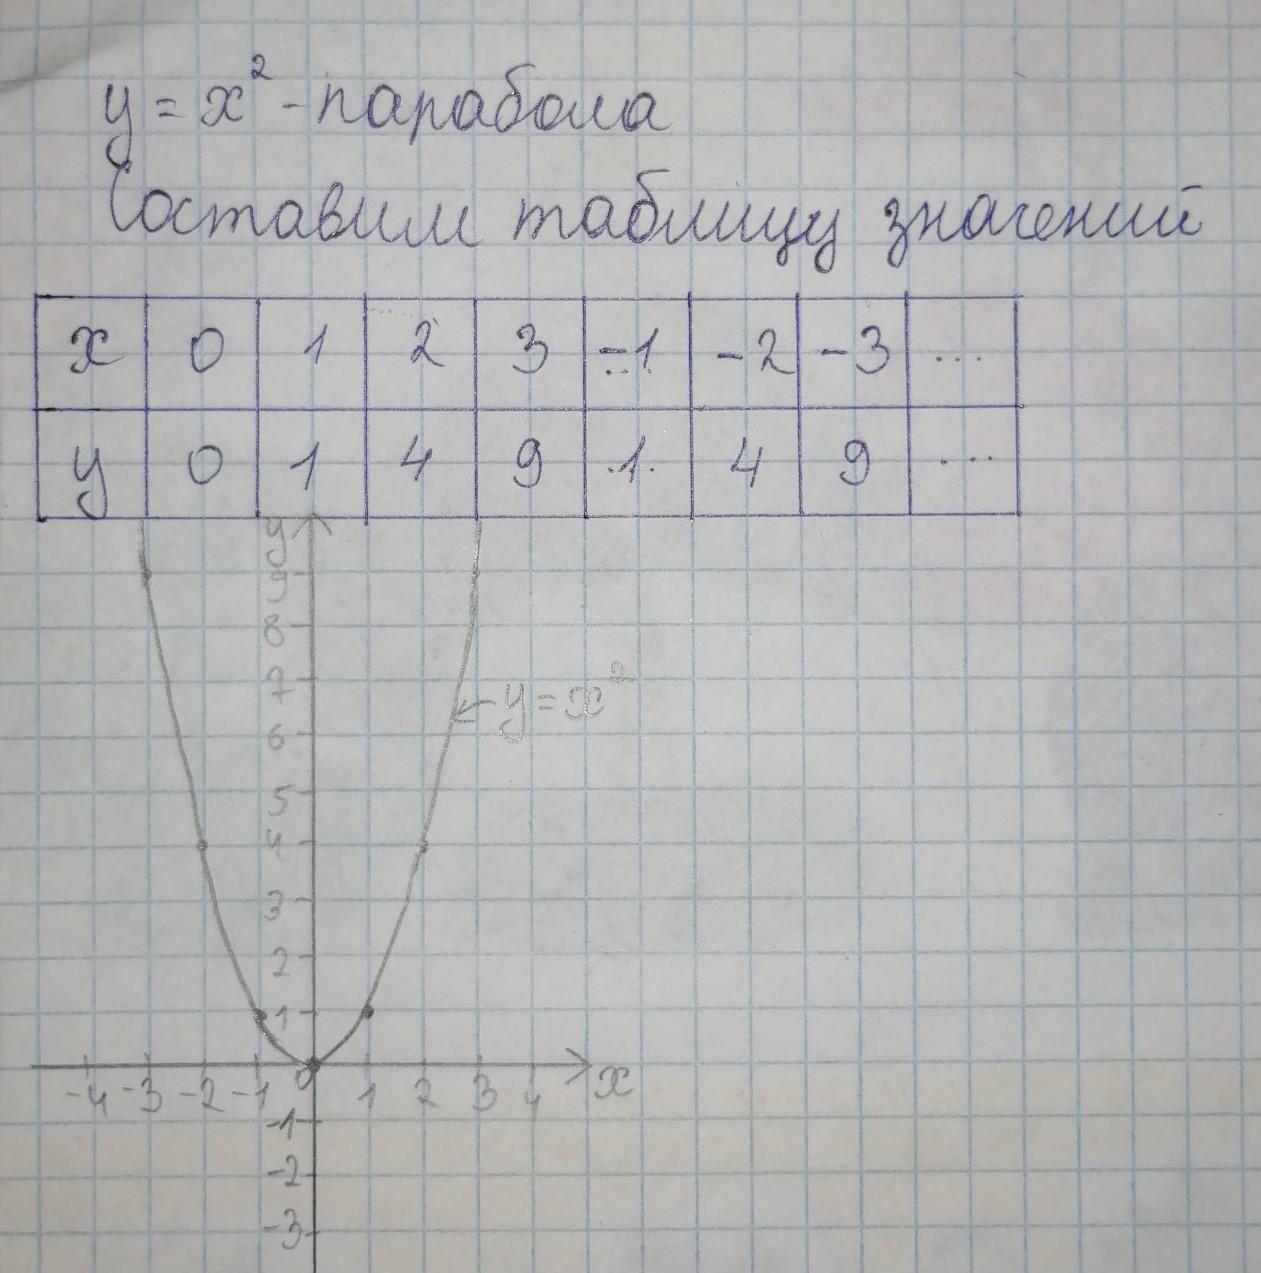 y = x² - парабола
Составим таблицу значений
x 0 1 2 3 -1 -2 -3 ...
y 0 1 4 9 1 4 9 ...
y
9
8
7
y = x²
6
5
4
3
2
1
-4 -3 -2 -1 0 1 2 3 4 x
-1
-2
-3